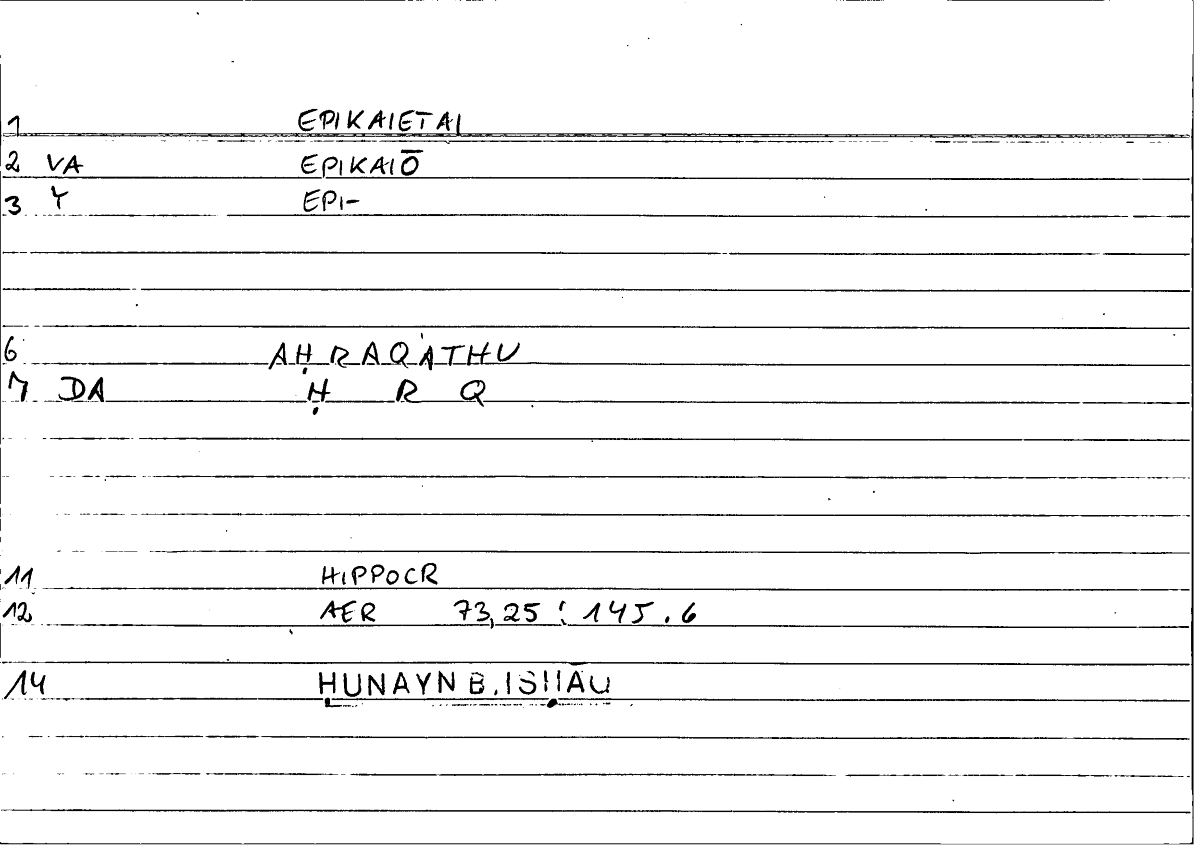 1 EPIKAIETAI
2 VA EPIKAIŌ
3 Y EPI-
6 AḤRAQATHU
7 DA Ḥ R Q
11 HIPPOCR
12 AER 73,25 : 145.6
14 ḤUNAYN B. ISḤĀQ